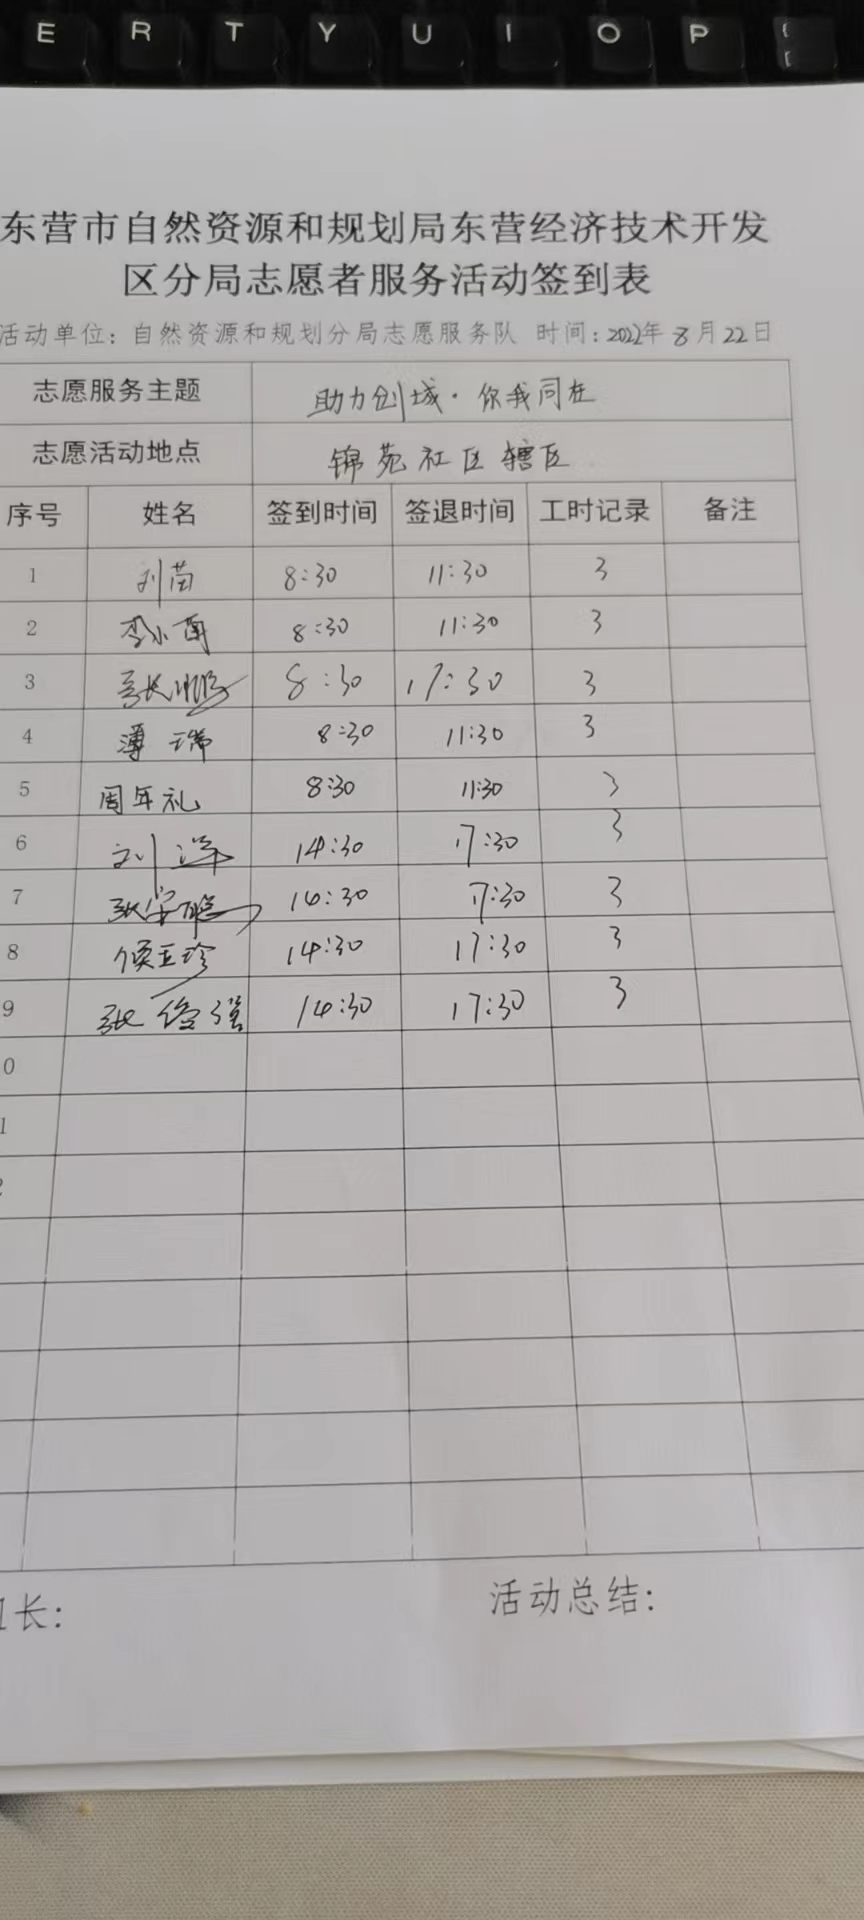 E R T Y U I O P { [
东营市自然资源和规划局东营经济技术开发
区分局志愿者服务活动签到表
活动单位：自然资源和规划分局志愿服务队 时间：2022年8月22日
志愿服务主题 助力创城·你我同在
志愿活动地点 锦苑社区辖区
序号 姓名 签到时间 签退时间 工时记录 备注
1 刘苗 8:30 11:30 3
2 李小雨 8:30 11:30 3
3 8:30 17:30 3
4 薄瑞 8:30 11:30 3
5 周年礼 8:30 11:30 3
6 刘洋 14:30 17:30 3
7 张安聪 14:30 17:30 3
8 侯玉珍 14:30 17:30 3
9 张俊强 14:30 17:30 3
0
1
2
长： 活动总结：